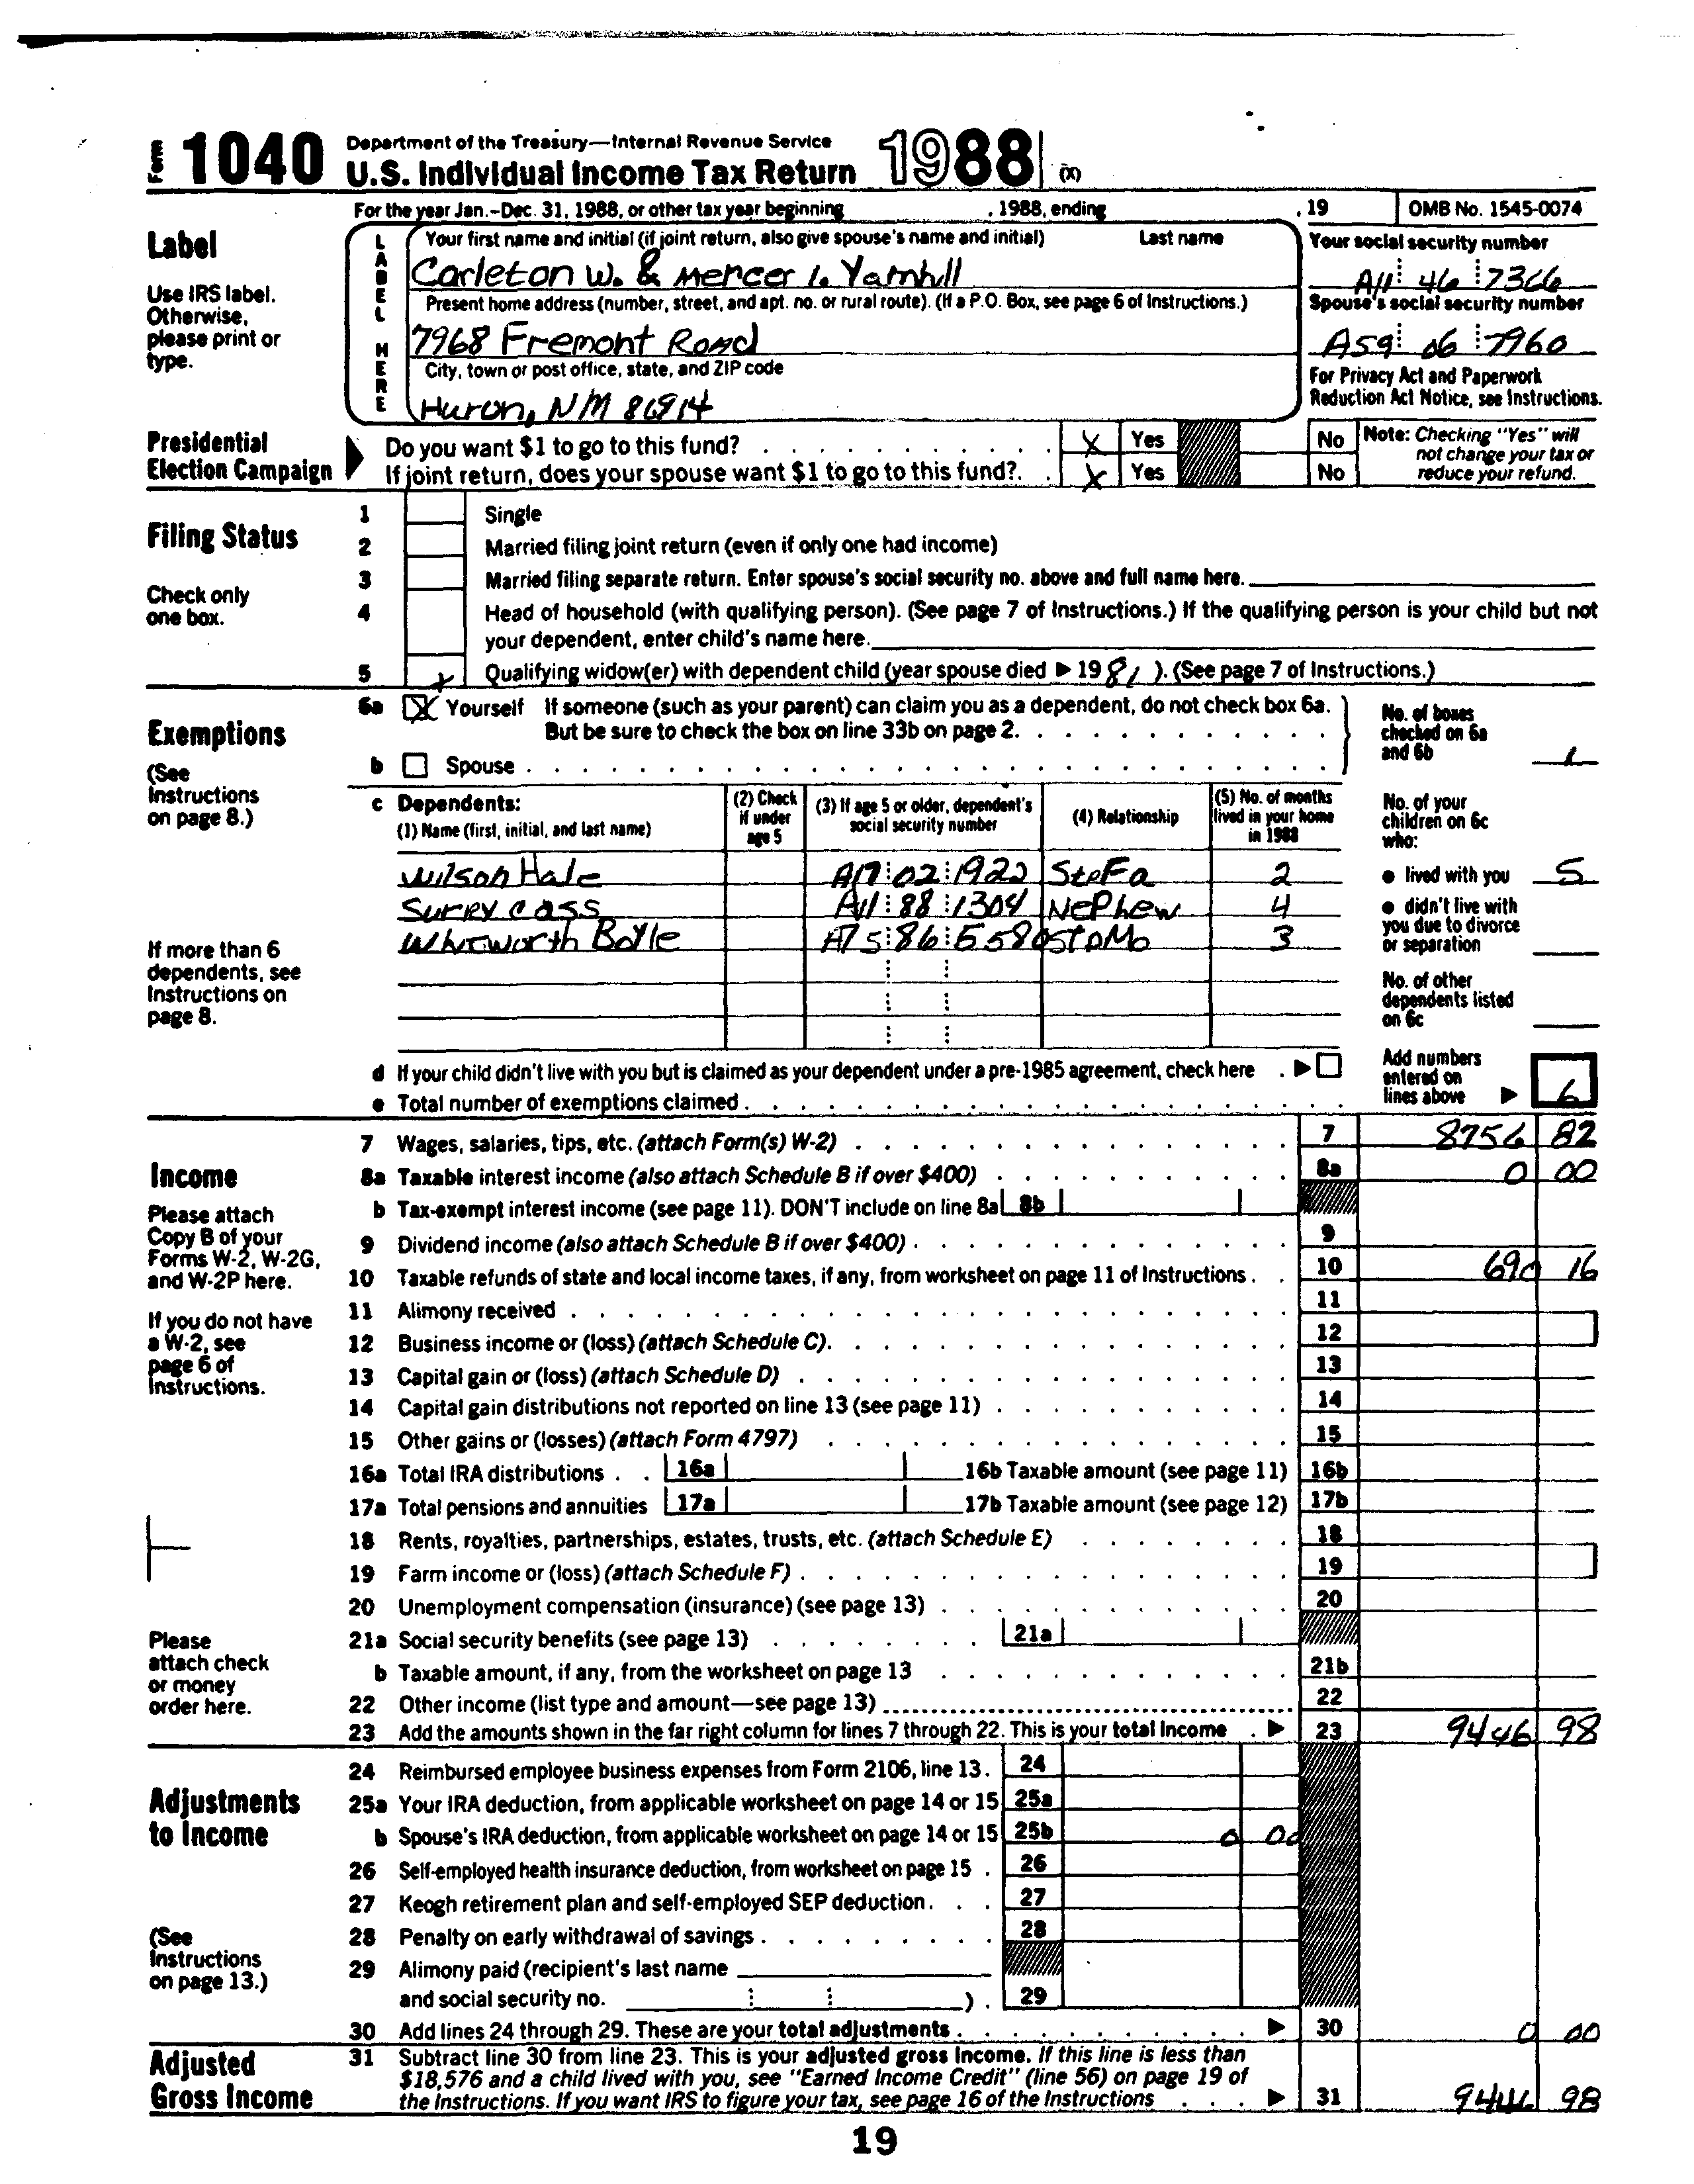 Form 1040 Department of the Treasury—Internal Revenue Service
U.S. Individual Income Tax Return 1988 (X)
For the year Jan.–Dec. 31, 1988, or other tax year beginning , 1988, ending , 19 OMB No. 1545-0074
Label
Use IRS label. Otherwise, please print or type.
LABEL HERE
Your first name and initial (if joint return, also give spouse's name and initial) Last name
Carleton W. & Mercer L. Yamhill
Your social security number
A11 46 7366
Present home address (number, street, and apt. no. or rural route). (If a P.O. Box, see page 6 of Instructions.)
7968 Fremont Road
Spouse's social security number
A59 06 7960
City, town or post office, state, and ZIP code
Huron, NM 86914
For Privacy Act and Paperwork Reduction Act Notice, see Instructions.
Presidential Election Campaign
Do you want $1 to go to this fund? X Yes No
If joint return, does your spouse want $1 to go to this fund? X Yes No
Note: Checking "Yes" will not change your tax or reduce your refund.
Filing Status
Check only one box.
1 Single
2 Married filing joint return (even if only one had income)
3 Married filing separate return. Enter spouse's social security no. above and full name here.
4 Head of household (with qualifying person). (See page 7 of Instructions.) If the qualifying person is your child but not
your dependent, enter child's name here.
5 X Qualifying widow(er) with dependent child (year spouse died ▶ 1981 ). (See page 7 of Instructions.)
Exemptions
(See Instructions on page 8.)
6a X Yourself If someone (such as your parent) can claim you as a dependent, do not check box 6a.
But be sure to check the box on line 33b on page 2.
b Spouse
No. of boxes checked on 6a and 6b 1
c Dependents:
(1) Name (first, initial, and last name) (2) Check if under age 5 (3) If age 5 or older, dependent's social security number (4) Relationship (5) No. of months lived in your home in 1988
Wilson Hale A17 02 1922 SteFa 2
Surry Cass A11 88 1304 Nephew 4
Whitworth Boyle A75 86 5580 StpMo 3
If more than 6 dependents, see Instructions on page 8.
No. of your children on 6c who:
● lived with you 5
● didn't live with you due to divorce or separation
No. of other dependents listed on 6c
d If your child didn't live with you but is claimed as your dependent under a pre-1985 agreement, check here ▶
e Total number of exemptions claimed
Add numbers entered on lines above ▶ 6
Income
Please attach Copy B of your Forms W-2, W-2G, and W-2P here.
If you do not have a W-2, see page 6 of Instructions.
Please attach check or money order here.
7 Wages, salaries, tips, etc. (attach Form(s) W-2) 7 8756 82
8a Taxable interest income (also attach Schedule B if over $400) 8a 0 00
b Tax-exempt interest income (see page 11). DON'T include on line 8a 8b
9 Dividend income (also attach Schedule B if over $400) 9
10 Taxable refunds of state and local income taxes, if any, from worksheet on page 11 of Instructions 10 690 16
11 Alimony received 11
12 Business income or (loss) (attach Schedule C) 12
13 Capital gain or (loss) (attach Schedule D) 13
14 Capital gain distributions not reported on line 13 (see page 11) 14
15 Other gains or (losses) (attach Form 4797) 15
16a Total IRA distributions 16a 16b Taxable amount (see page 11) 16b
17a Total pensions and annuities 17a 17b Taxable amount (see page 12) 17b
18 Rents, royalties, partnerships, estates, trusts, etc. (attach Schedule E) 18
19 Farm income or (loss) (attach Schedule F) 19
20 Unemployment compensation (insurance) (see page 13) 20
21a Social security benefits (see page 13) 21a
b Taxable amount, if any, from the worksheet on page 13 21b
22 Other income (list type and amount—see page 13) 22
23 Add the amounts shown in the far right column for lines 7 through 22. This is your total income ▶ 23 9446 98
Adjustments to Income
(See Instructions on page 13.)
24 Reimbursed employee business expenses from Form 2106, line 13. 24
25a Your IRA deduction, from applicable worksheet on page 14 or 15 25a
b Spouse's IRA deduction, from applicable worksheet on page 14 or 15 25b 0 00
26 Self-employed health insurance deduction, from worksheet on page 15 26
27 Keogh retirement plan and self-employed SEP deduction 27
28 Penalty on early withdrawal of savings 28
29 Alimony paid (recipient's last name
and social security no. ) 29
30 Add lines 24 through 29. These are your total adjustments ▶ 30 0 00
Adjusted Gross Income
31 Subtract line 30 from line 23. This is your adjusted gross income. If this line is less than
$18,576 and a child lived with you, see "Earned Income Credit" (line 56) on page 19 of
the Instructions. If you want IRS to figure your tax, see page 16 of the Instructions ▶ 31 9446 98
19